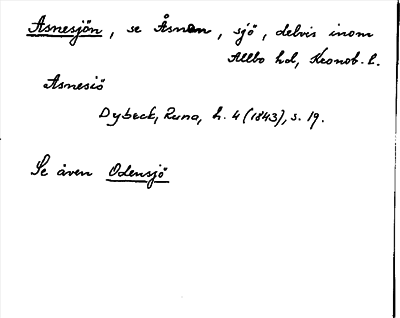 Asnesjön, se Åsnen, sjö, delvis inom
Allbo hd, Kronob. l.
Asnesiö
Dybeck, Runa, h. 4 (1843), s. 19.
Se även Odensjö